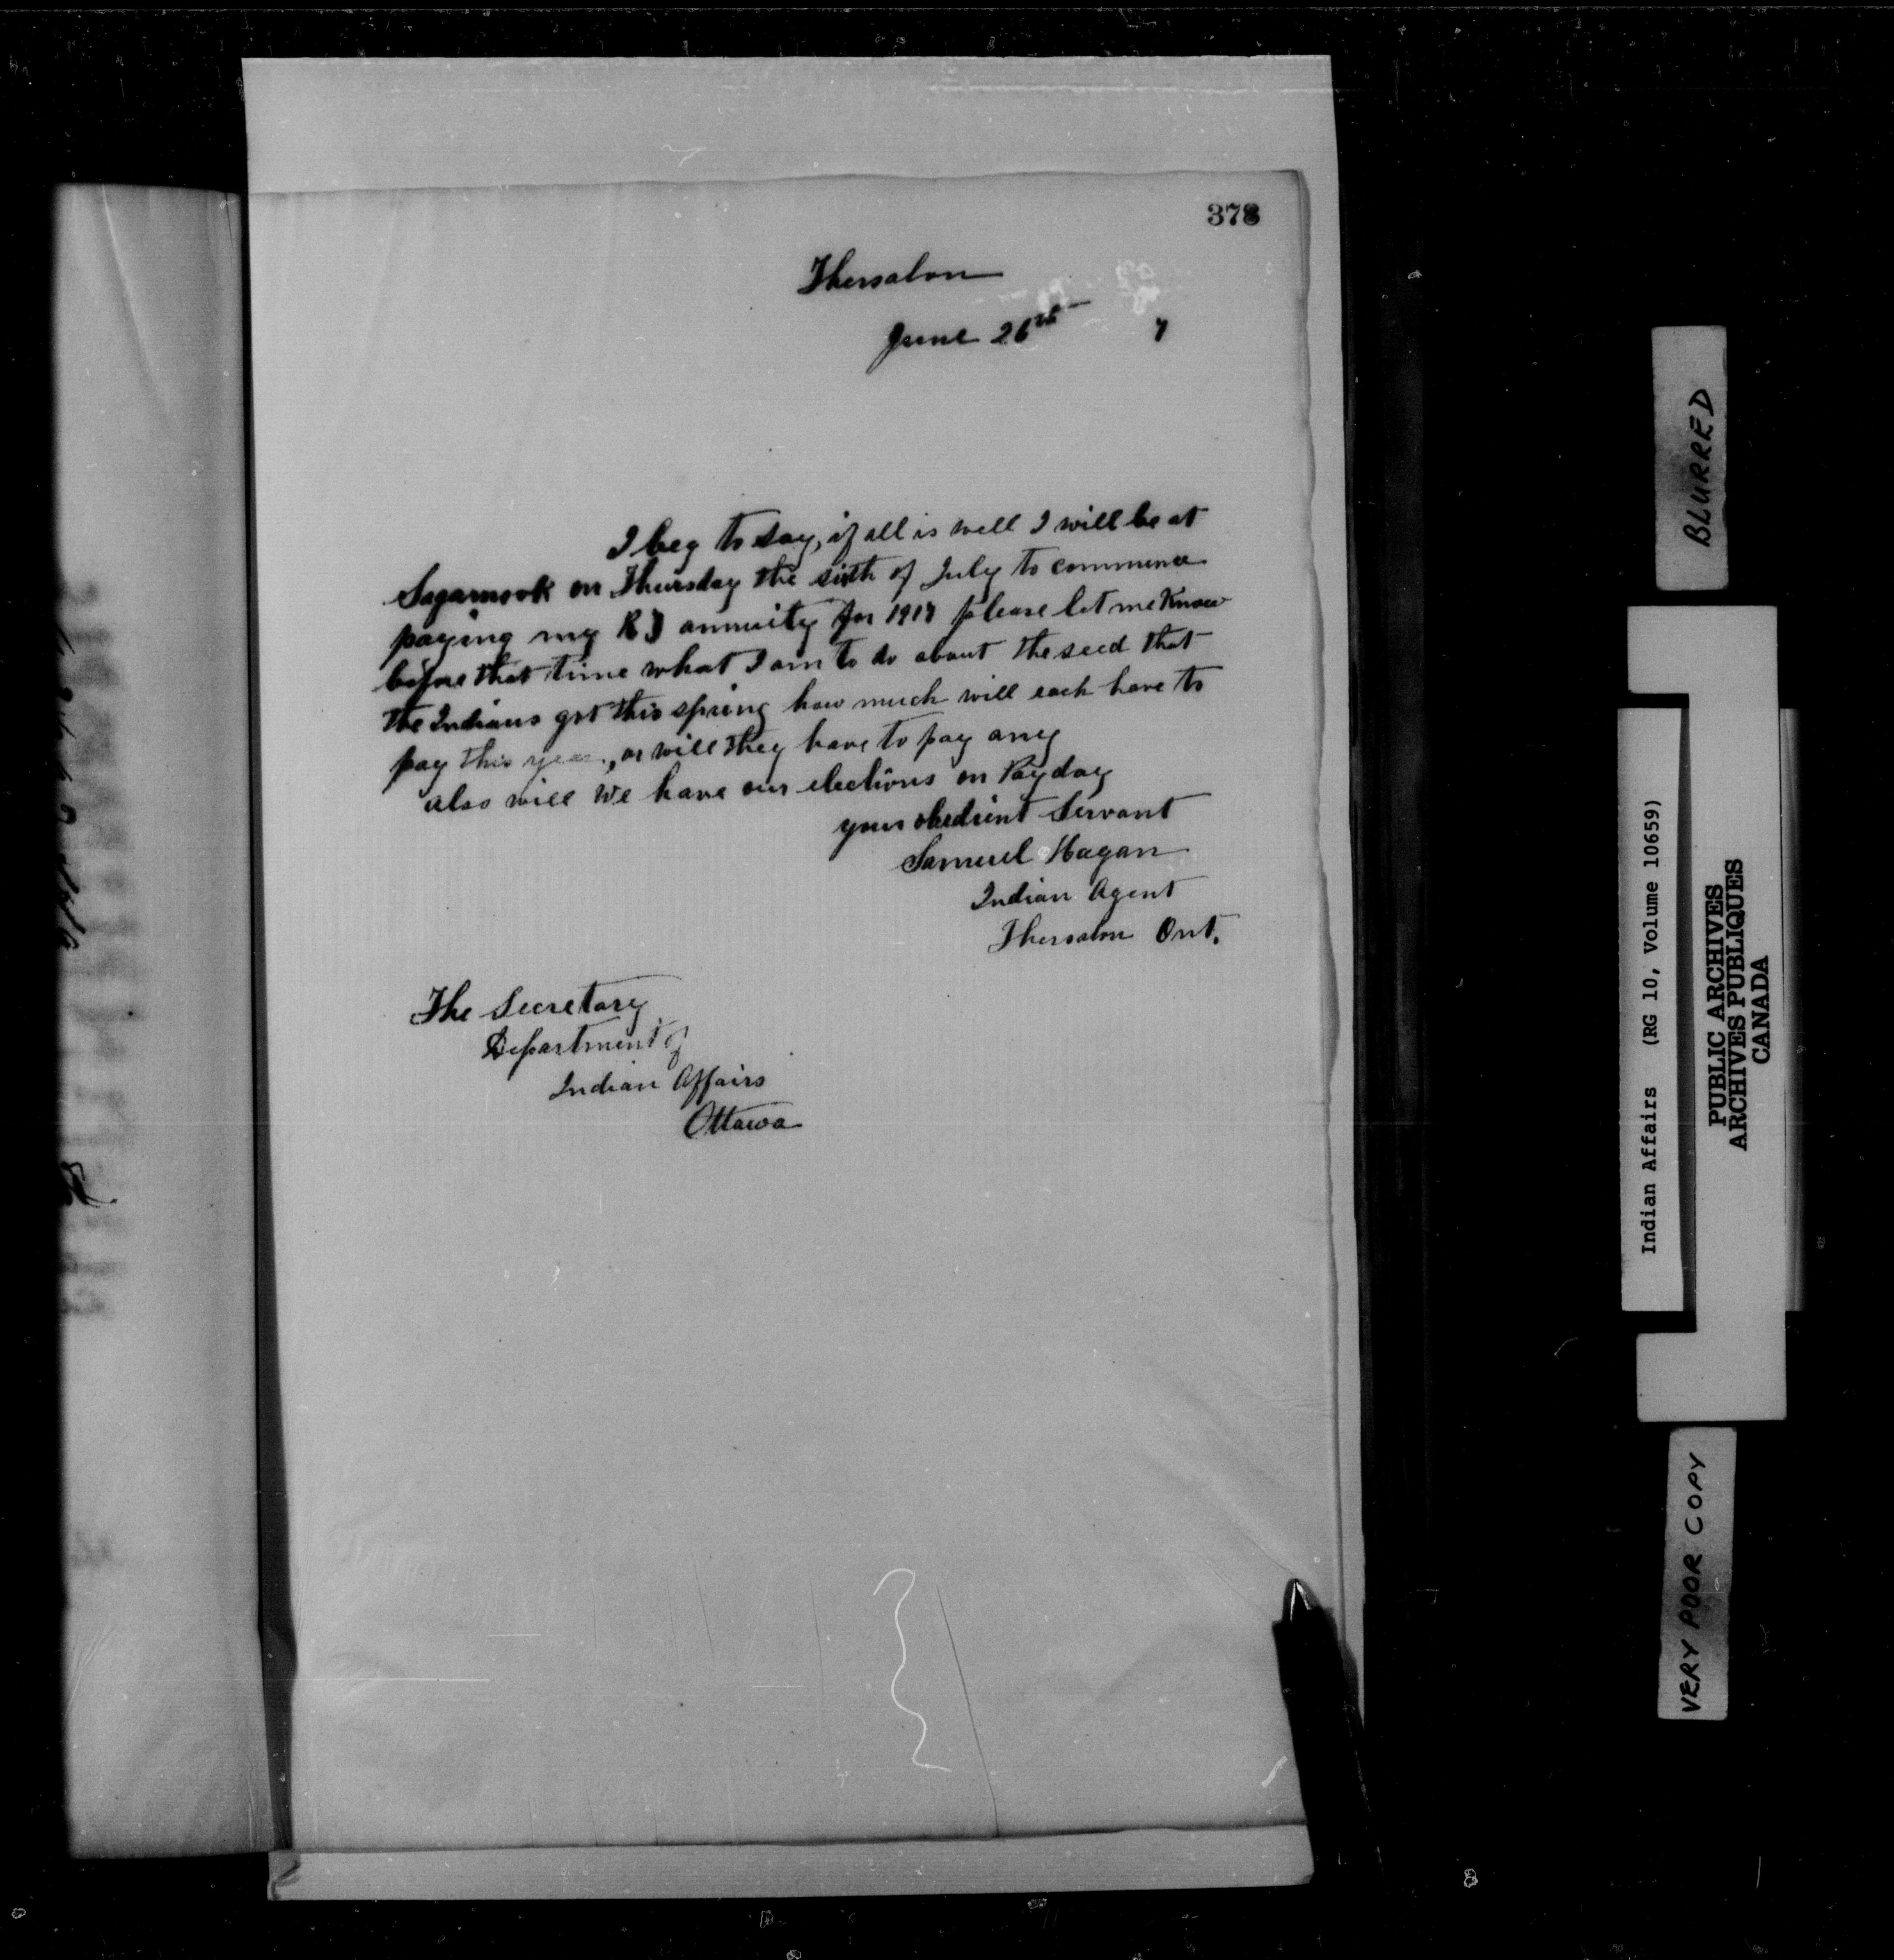 378
Thessalon
June 26th 7
I beg to say, if all is well I will be at
Sagamook on Thursday the sixth of July to commence
paying my R T annuity for 1917 please let me know
before that time what I am to do about the seed that
the Indians got this spring how much will each have to
pay this year, or will they have to pay any
also will we have our elections on Payday
your obedient Servant
Samuel Hagan
Indian Agent
Thessalon Ont.
The Secretary
Department of
Indian Affairs
Ottawa
BLURRED
Indian Affairs (RG 10, Volume 10659)
PUBLIC ARCHIVES
ARCHIVES PUBLIQUES
CANADA
VERY POOR COPY